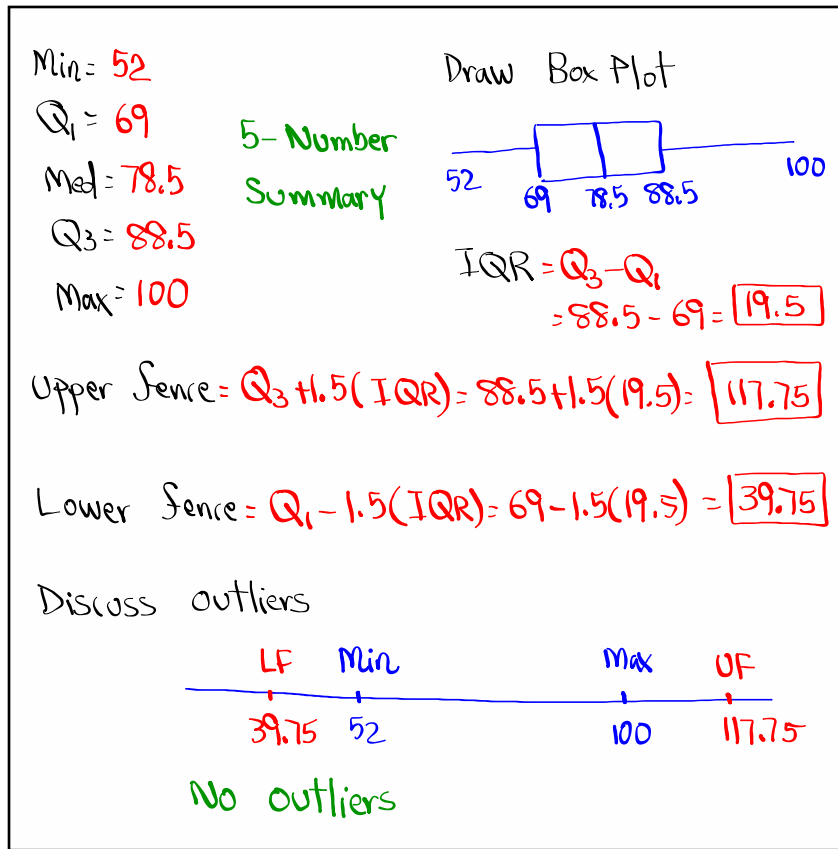 Min= 52
Q1 = 69
Med= 78.5
Q3 = 88.5
Max= 100
5-Number
Summary
Draw Box Plot
52 69 78.5 88.5 100
IQR = Q3-Q1
= 88.5 - 69 = 19.5
Upper fence= Q3 +1.5(IQR)= 88.5+1.5(19.5)= 117.75
Lower fence= Q1 - 1.5(IQR)= 69-1.5(19.5) = 39.75
Discuss outliers
LF Min Max UF
39.75 52 100 117.75
No outliers